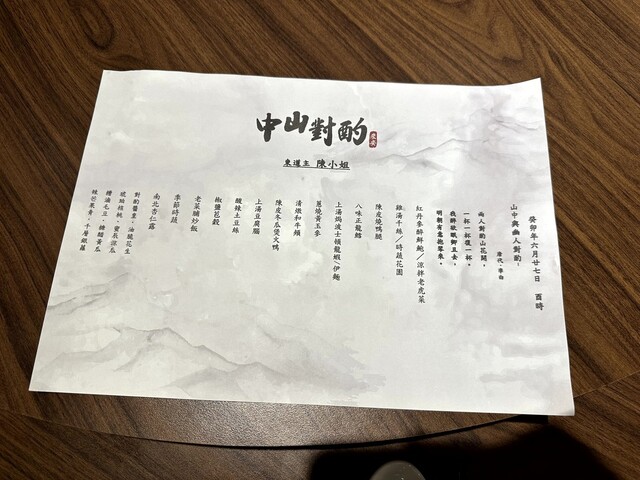 中山對酌
東道主 陳小姐
癸卯年六月廿七日 酉時
山中與幽人對酌！
唐代·李白
兩人對酌山花開，
一杯一杯復一杯。
我醉欲眠卿且去，
明朝有意抱琴來。
紅丹季醉鮮鮑／涼拌老虎菜
雞湯千絲／時蔬花園
陳皮燒鴨腿
八味正龍鱈
上湯焗波士頓龍蝦/伊麵
蔥燒黃玉參
清燉和牛頰
陳皮冬瓜煲火鴨
上湯豆腐腦
酸辣土豆絲
椒鹽苞穀
老菜脯炒飯
季節時蔬
南北杏仁露
對酌醬皇·油脆花生
琥珀核桃、蜜辰涼瓜
糟滷毛豆、糖醋黃瓜
辣芒果青·千層銀葉